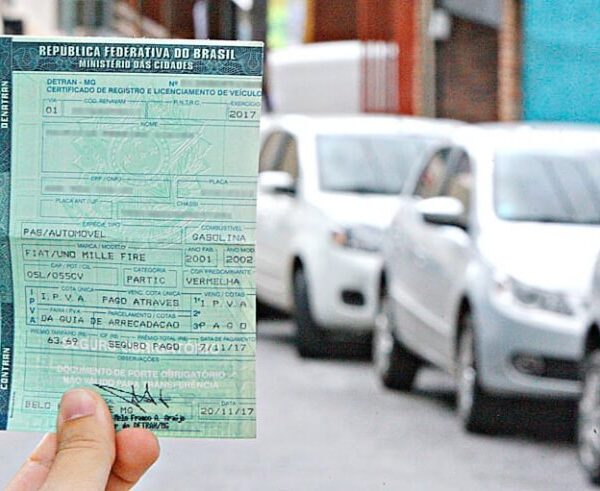 REPÚBLICA FEDERATIVA DO BRASIL
MINISTÉRIO DAS CIDADES
DENATRAN
CONTRAN
DETRAN - MG Nº
CERTIFICADO DE REGISTRO E LICENCIAMENTO DE VEÍCULO
VIA CÓD. RENAVAM R.N.T.R.C. EXERCÍCIO
01 2017
NOME
CPF / CNPJ PLACA
PLACA ANT / UF CHASSI
ESPÉCIE TIPO COMBUSTÍVEL
PAS/AUTOMOVEL GASOLINA
MARCA / MODELO ANO FAB. ANO MOD.
FIAT/UNO MILLE FIRE 2001 2002
CAP / POT / CIL CATEGORIA COR PREDOMINANTE
05L/055CV PARTIC VERMELHA
IPVA
COTA ÚNICA VENC. COTA ÚNICA VENC. / COTAS
I.P.V.A PAGO ATRAVES 1ª I.P.V.A
FAIXA I.P.V.A PARCELAMENTO / COTAS 2ª
DA GUIA DE ARRECADACAO 3ª P A G O
PRÊMIO TARIFÁRIO (R$) IOF (R$) PRÊMIO TOTAL (R$) DATA DE PAGAMENTO
63,69 SEGURO PAGO 7/11/17
OBSERVAÇÕES
DOCUMENTO DE PORTE OBRIGATÓRIO
NÃO VÁLIDO PARA TRANSFERÊNCIA
DATA
BELO E MG 20/11/17
Melo Franco A. Araújo
DETRAN/MG